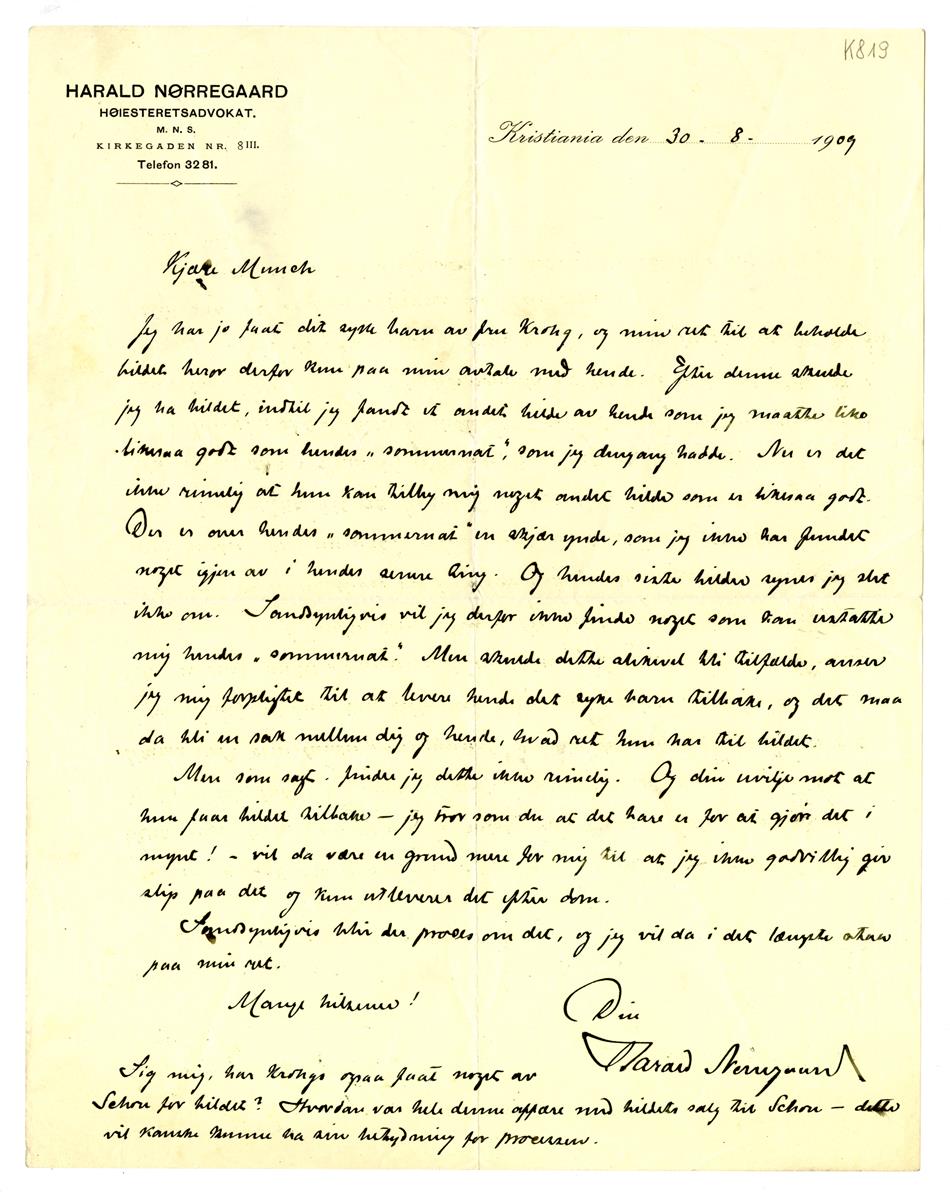 K819
HARALD NØRREGAARD
HØIESTERETSADVOKAT.
M. N. S.
KIRKEGADEN NR. 8 III.
Telefon 3281.
Kristiania den 30 - 8 - 1909
Kjære Munch
Jeg har jo faat dit syke barn av fru Krohg, og min ret til at beholde
bildet beror derfor kun paa min avtale med hende. Efter denne skulde
jeg ha bildet, indtil jeg fandt et andet bilde av hende som jeg maatte like
likesaa godt som hendes „sommernat“, som jeg dengang hadde. Nu er det
ikke rimelig at hun kan tilby mig noget andet bilde som er likesaa godt.
Der er over hendes „sommernat“ en skjær ynde, som jeg ikke har fundet
noget igjen av i hendes senere ting. Og hendes siste bilder synes jeg slet
ikke om. Sandsynligvis vil jeg derfor ikke finde noget som kan erstatte
mig hendes „sommernat“. Men skulde dette alikevel bli tilfælde, anser
jeg mig forpligtet til at levere hende det syke barn tilbake, og det maa
da bli en sak mellem dig og hende, hvad ret hun har til bildet.
Men som sagt - finder jeg dette ikke rimelig. Og din uvilje mot at
hun faar bildet tilbake — jeg tror som du at det bare er for at gjøre det i
mynt! - vil da være en grund mere for mig til at jeg ikke godvillig gir
slip paa det og kun utleverer det efter dom.
Sandsynligvis blir der proces om det, og jeg vil da i det længste staa
paa min ret.
Mange hilsener!
Din
Harald Nørregaard
Sig mig, har Krohgs ogsaa faat noget av
Schou for bildet? Hvordan var hele denne affære med bildets salg til Schou — dette
vil kanske kunne ha sin betydning for processen.